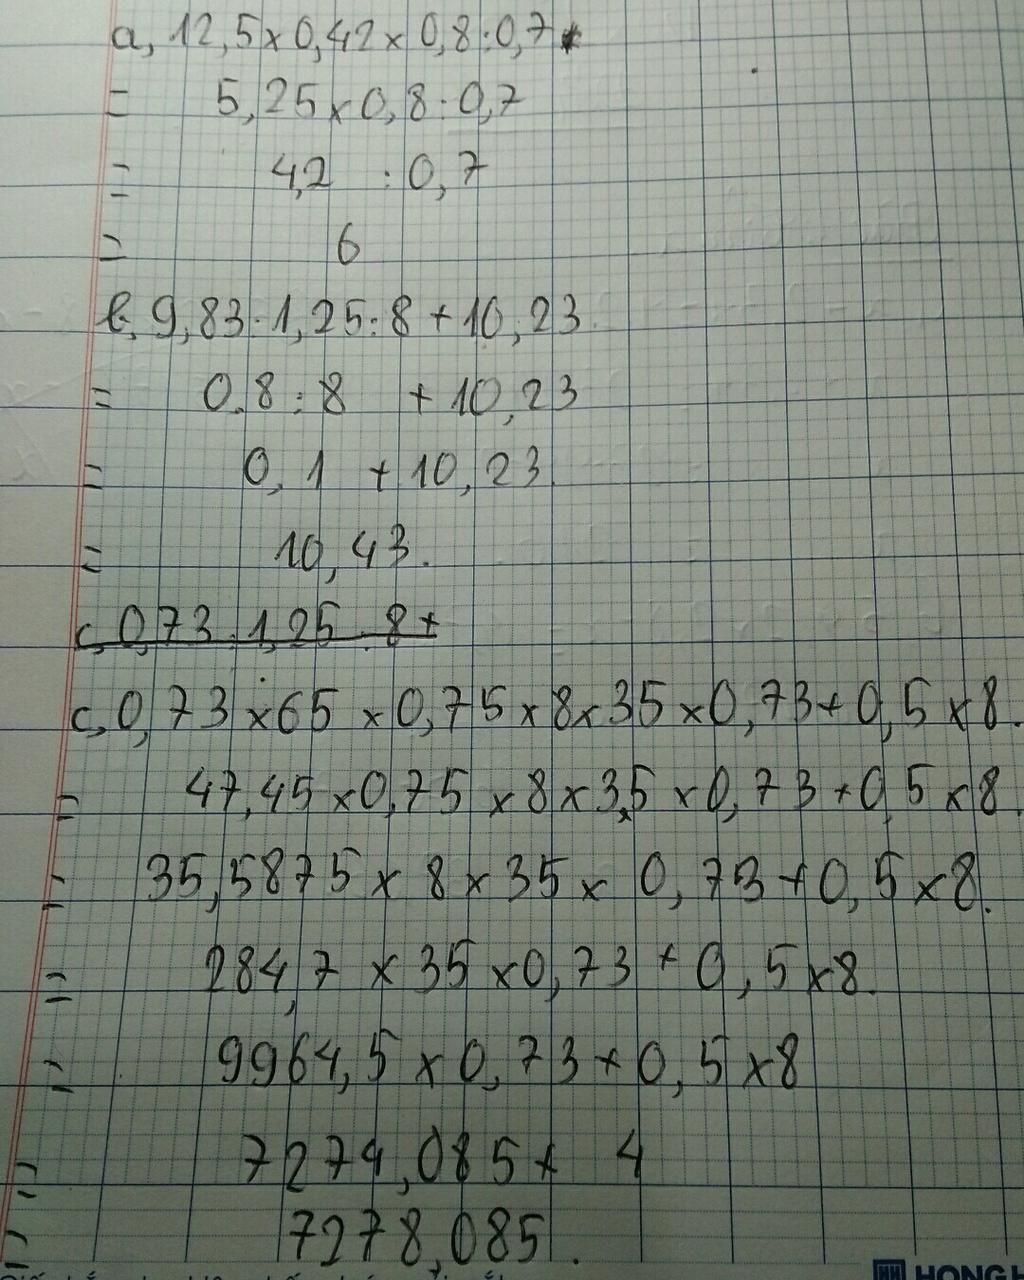 a, 12,5 x 0,42 x 0,8 : 0,7
= 5,25 x 0,8 : 0,7
= 4,2 : 0,7
= 6
b, 9,83 : 1,25 : 8 + 10,23
= 0,8 : 8 + 10,23
= 0,1 + 10,23
= 10,43.
c, 0,73 . 1,25 . 8 +
c, 0,73 x 65 x 0,75 x 8 x 35 x 0,73 + 0,5 x 8.
= 47,45 x 0,75 x 8 x 35 x 0,73 + 0,5 x 8.
= 35,5875 x 8 x 35 x 0,73 + 0,5 x 8.
= 284,7 x 35 x 0,73 + 0,5 x 8.
= 9964,5 x 0,73 + 0,5 x 8
= 7274,085 + 4
= 7278,085.